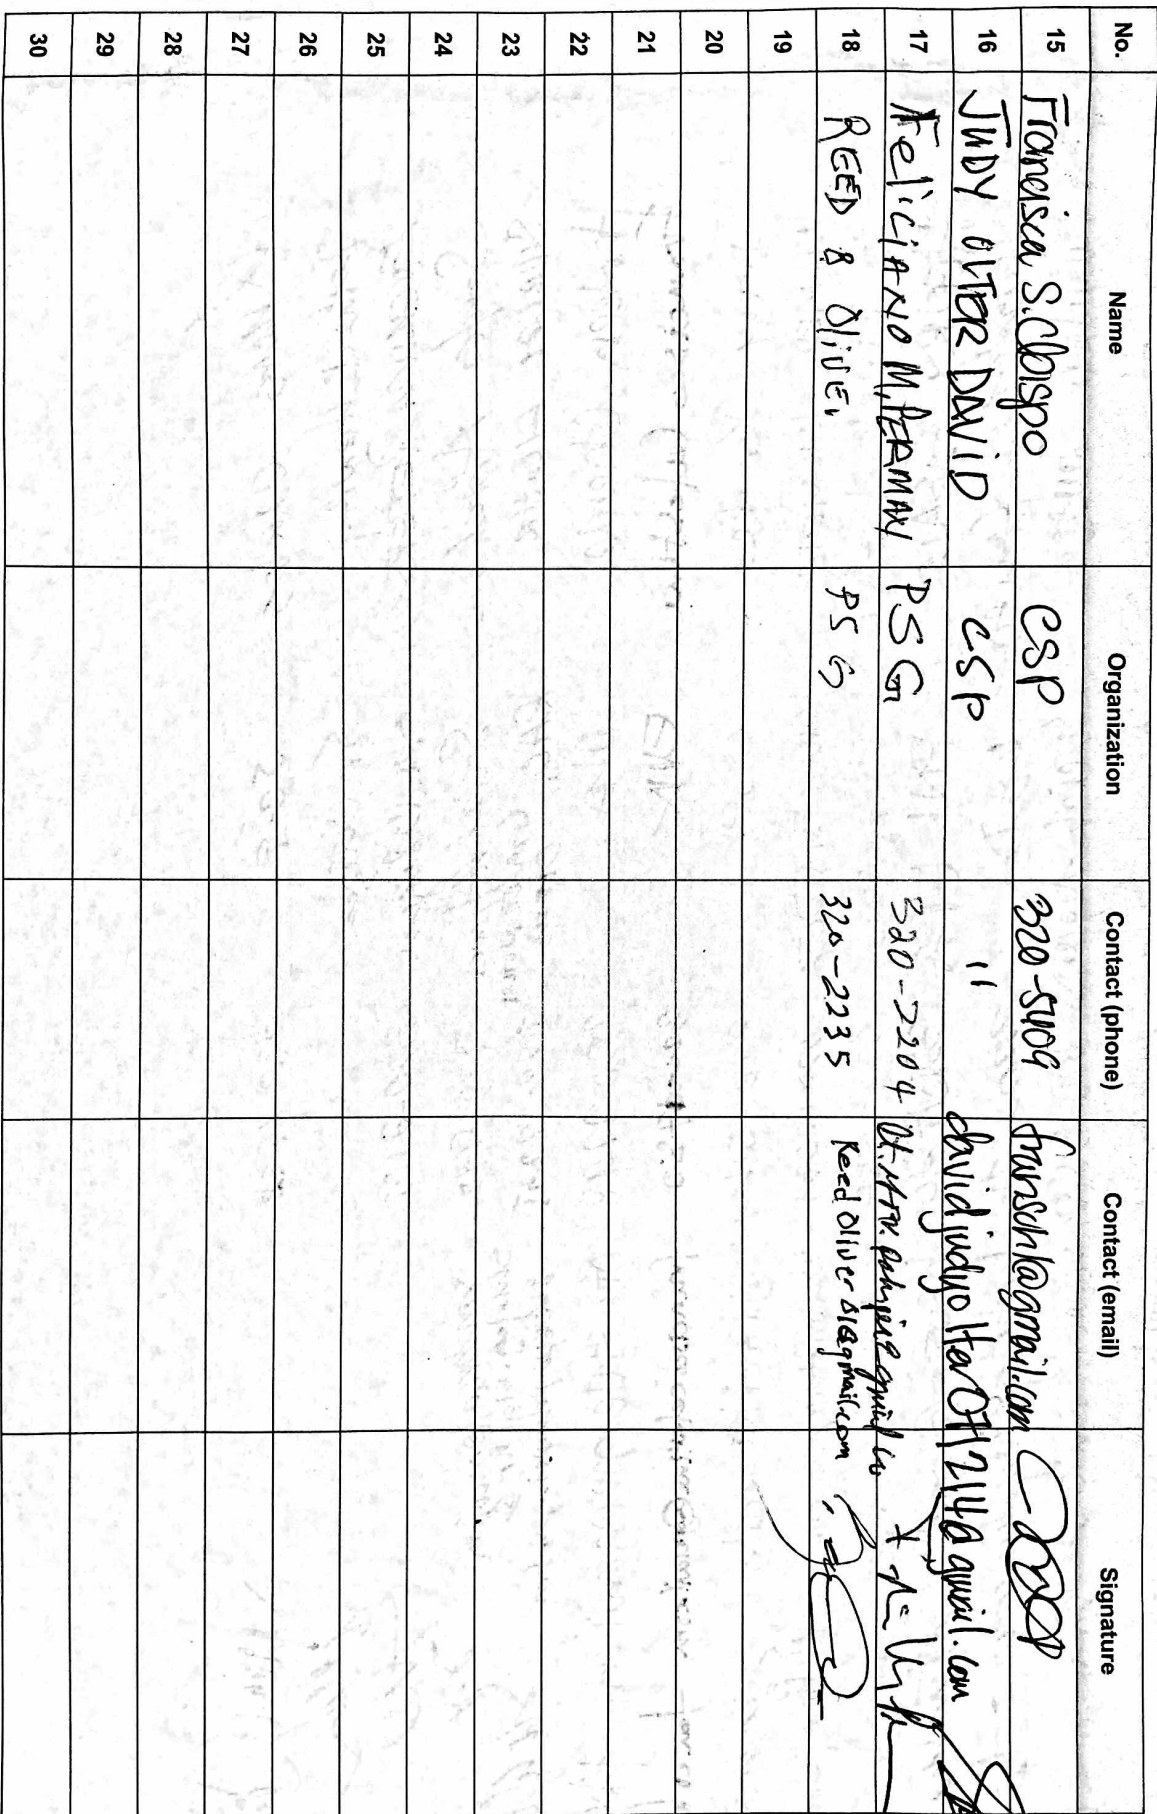 No. Name Organization Contact (phone) Contact (email) Signature
15 Francisca S. Obispo CSP 320-5409 fransch1@gmail.com
16 JUDY OLTER DAVID CSP " davidjudyolter071214@gmail.com
17 FeliciANO M. PERMAN PSG 320-2204
18 REED B OliVER PSG 320-2235 ReedOliver
19
20
21
22
23
24
25
26
27
28
29
30